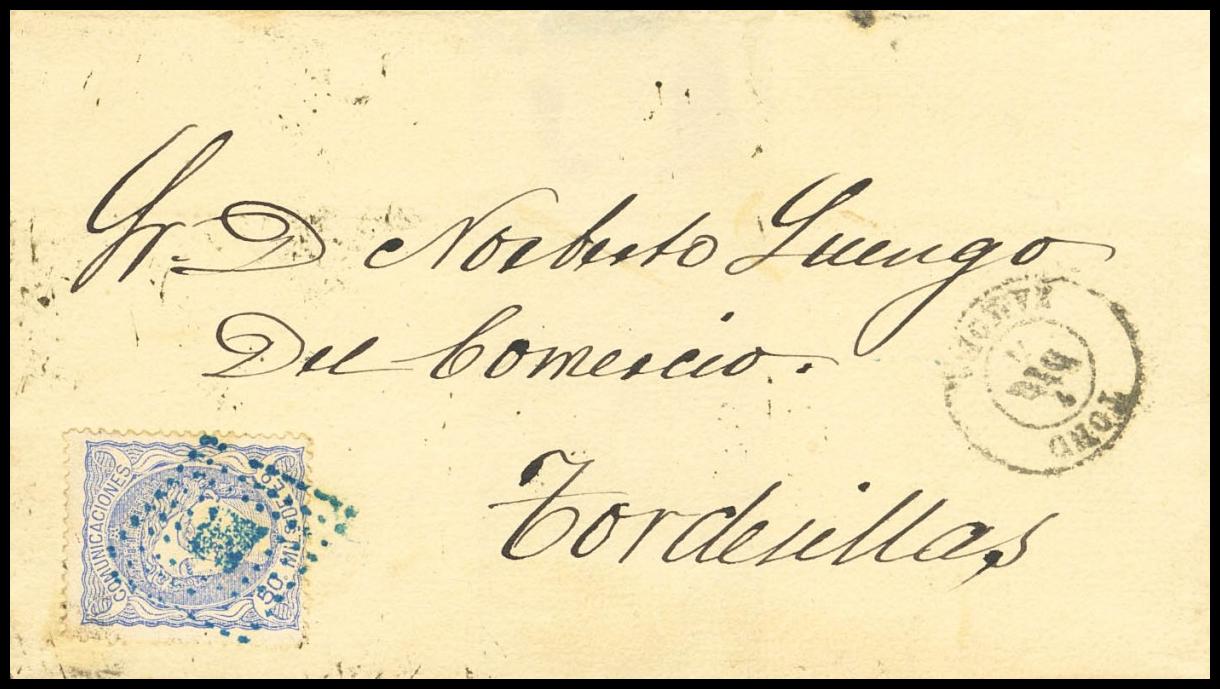 Sr. D Norberto Luengo
Del Comercio.
Tordesillas
COMUNICACIONES
50 MILS DE Eº
TORD
DIC